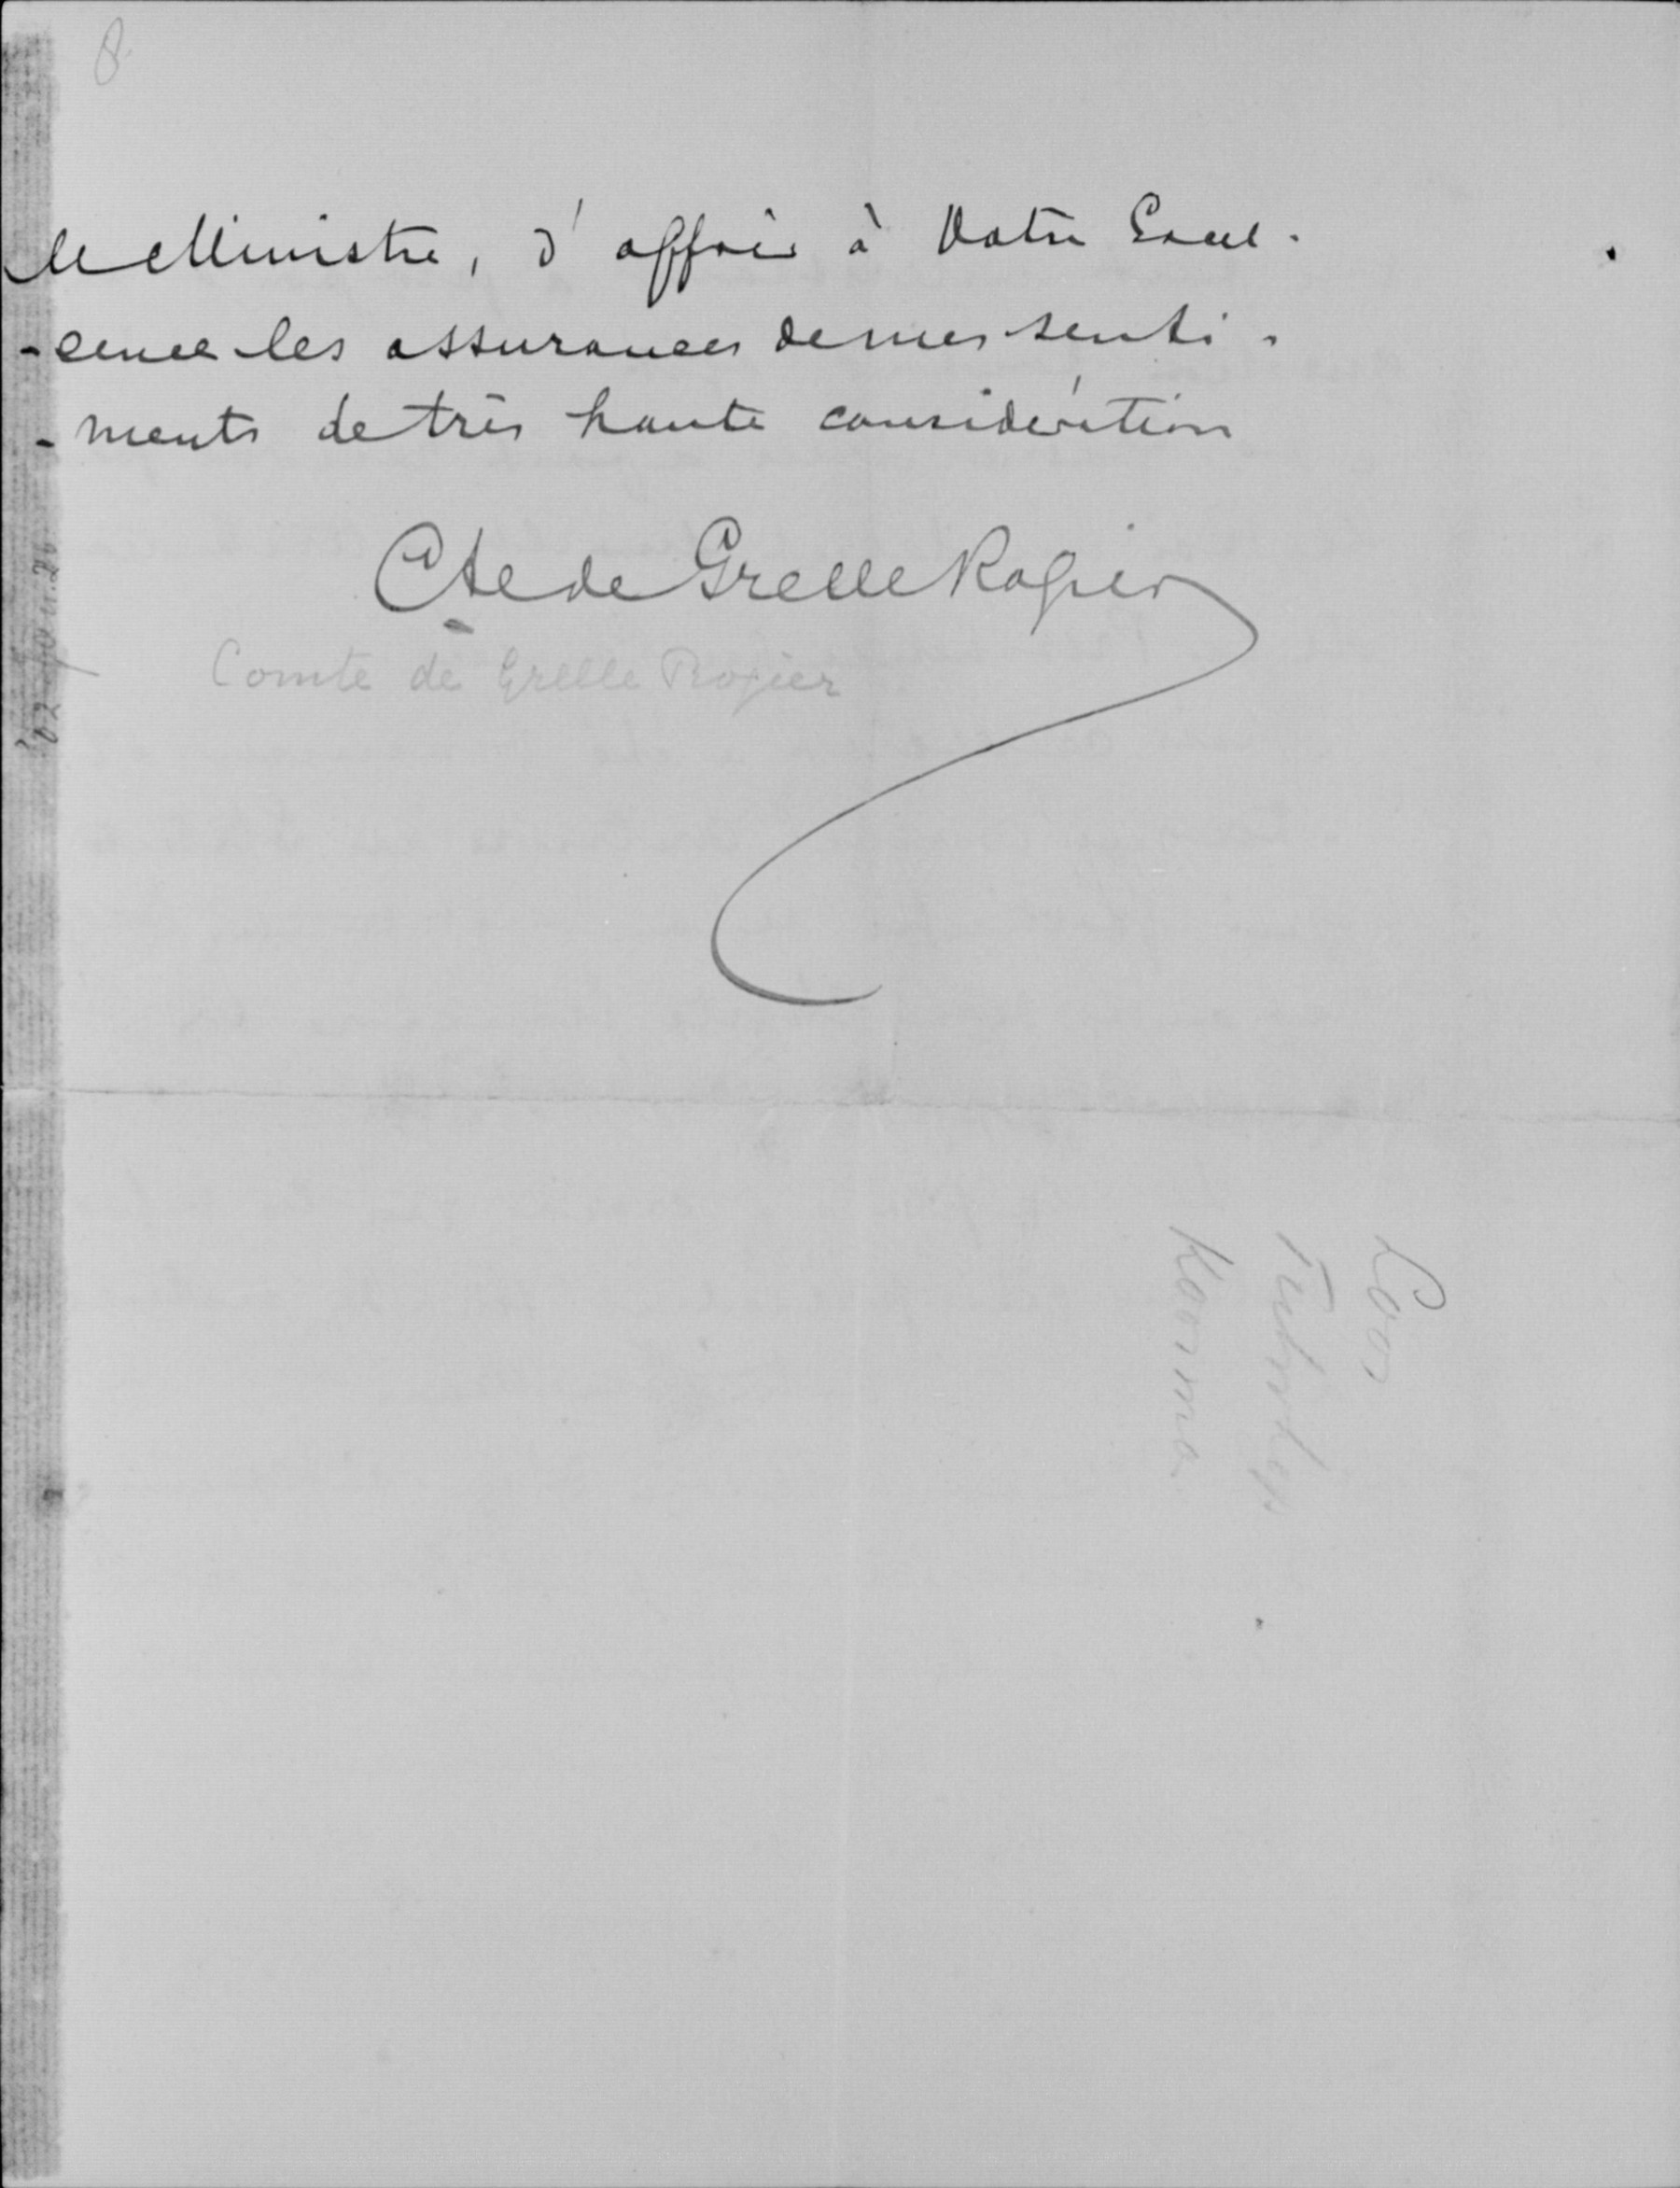 8
le Ministre, d'offrir à Votre Excel-
-lence les assurances de mes senti-
-ments de très haute considération
Cte de Grelle Rogier
Comte de Grelle Rogier